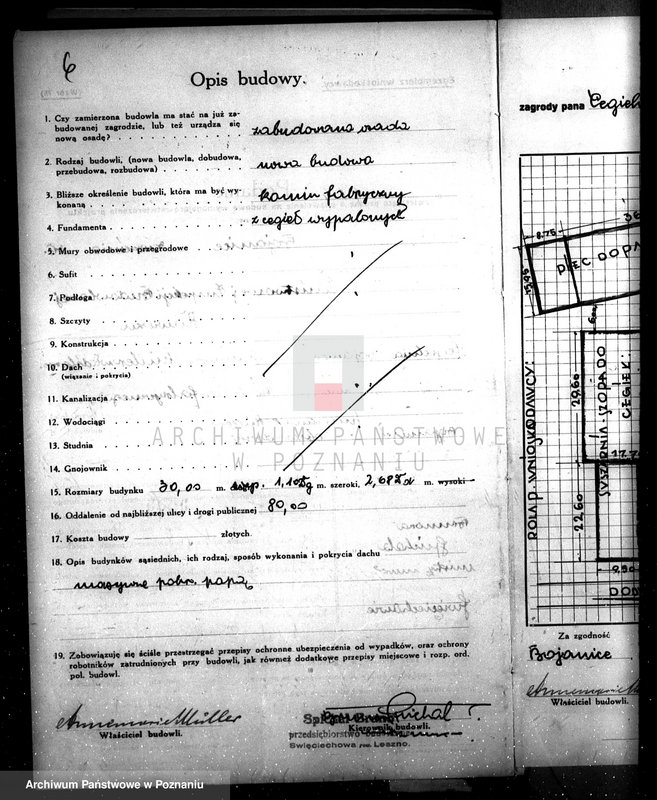 6
Opis budowy.
1. Czy zamierzona budowla ma stać na już za-
budowanej zagrodzie, lub też urządza się
nową osadę? zabudowana osada
2. Rodzaj budowli, (nowa budowla, dobudowa,
przebudowa, rozbudowa) nowa budowa
3. Bliższe określenie budowli, która ma być wy-
konaną komin fabryczny
4. Fundamenta z cegieł wypalonych
5. Mury obwodowe i przegrodowe
6. Sufit
7. Podłoga
8. Szczyty
9. Konstrukcja
10. Dach
(wiązanie i pokrycia)
11. Kanalizacja
12. Wodociągi
13. Studnia
14. Gnojownik
15. Rozmiary budynku 30,00 m. szeroki, m. wysoki
16. Oddalenie od najbliższej ulicy i drogi publicznej 80,00
17. Koszta budowy złotych.
18. Opis budynków sąsiednich, ich rodzaj, sposób wykonania i pokrycia dachu
masywne pokr. papą
19. Zobowiązuję się ściśle przestrzegać przepisy ochronne ubezpieczenia od wypadków, oraz ochrony
robotników zatrudnionych przy budowli, jak również dodatkowe przepisy miejscowe i rozp. ord.
pol. budowl.
Annemarie Müller
Właściciel budowli.
Kierownik budowli.
przedsiębiorstwo
Święciechowa pow. Leszno.
ARCHIWUM PAŃSTWOWE
W POZNANIU
zagrody pana Cegiel
8.75
36
PIEC DOPA
13,95
6,00
ROLA P. WNIOSKODAWCY:
20,60
SUSZARNIA I SZOPA DO
CEGIEŁ:
17.7
22,60
9,50
DOM
Za zgodność
Bojanice
Annemarie M
Właściciel budowli.
Archiwum Państwowe w Poznaniu